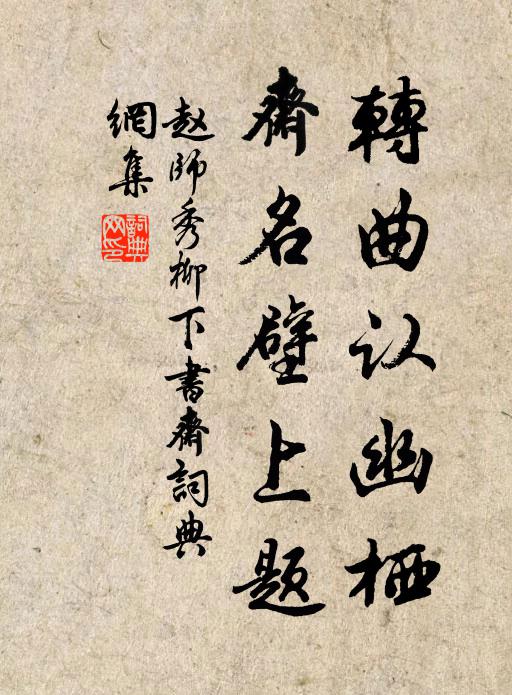 轉曲认幽栖
齋名壁上题
赵師秀柳下書齋詞典
網集
詞典網印